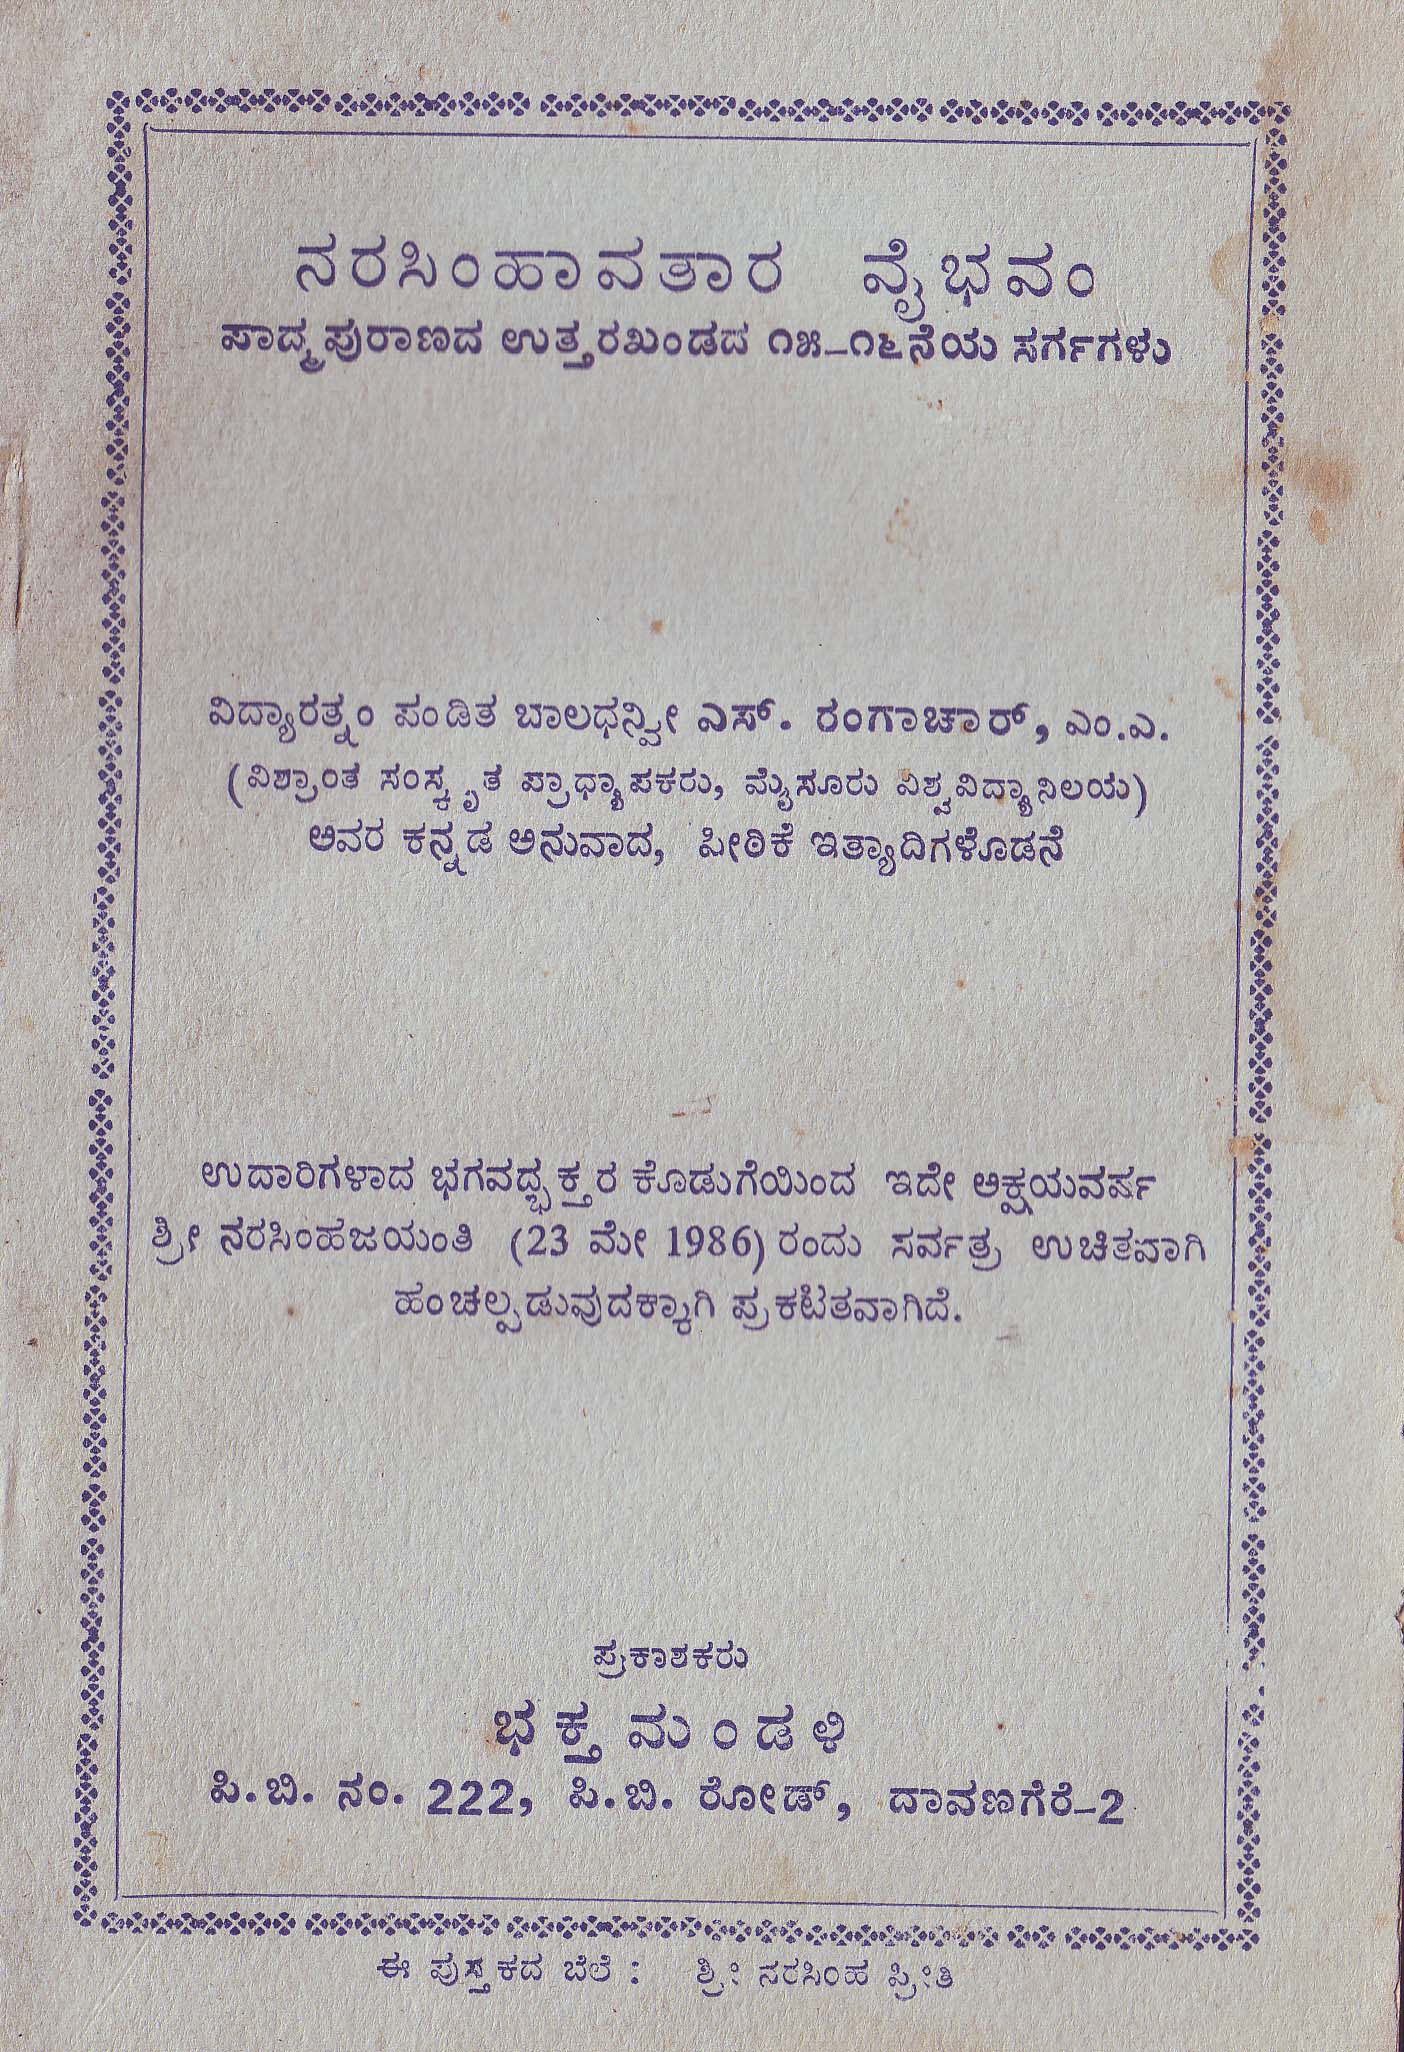 ನರಸಿಂಹಾವತಾರ ವೈಭವಂ
ಪಾದ್ಮಪುರಾಣದ ಉತ್ತರಖಂಡದ ೧೫–೧೬ನೆಯ ಸರ್ಗಗಳು
ವಿದ್ಯಾರತ್ನಂ ಪಂಡಿತ ಬಾಲಧನ್ವೀ ಎಸ್. ರಂಗಾಚಾರ್, ಎಂ.ಎ.
(ವಿಶ್ರಾಂತ ಸಂಸ್ಕೃತ ಪ್ರಾಧ್ಯಾಪಕರು, ಮೈಸೂರು ವಿಶ್ವವಿದ್ಯಾನಿಲಯ)
ಅವರ ಕನ್ನಡ ಅನುವಾದ, ಪೀಠಿಕೆ ಇತ್ಯಾದಿಗಳೊಡನೆ
ಉದಾರಿಗಳಾದ ಭಗವದ್ಭಕ್ತರ ಕೊಡುಗೆಯಿಂದ ಇದೇ ಅಕ್ಷಯವರ್ಷ
ಶ್ರೀ ನರಸಿಂಹಜಯಂತಿ (23 ಮೇ 1986) ರಂದು ಸರ್ವತ್ರ ಉಚಿತವಾಗಿ
ಹಂಚಲ್ಪಡುವುದಕ್ಕಾಗಿ ಪ್ರಕಟಿತವಾಗಿದೆ.
ಪ್ರಕಾಶಕರು
ಭಕ್ತ ಮಂಡಳಿ
ಪಿ.ಬಿ. ನಂ. 222, ಪಿ.ಬಿ. ರೋಡ್, ದಾವಣಗೆರೆ–2
ಈ ಪುಸ್ತಕದ ಬೆಲೆ : ಶ್ರೀ ನರಸಿಂಹ ಪ್ರೀತಿ